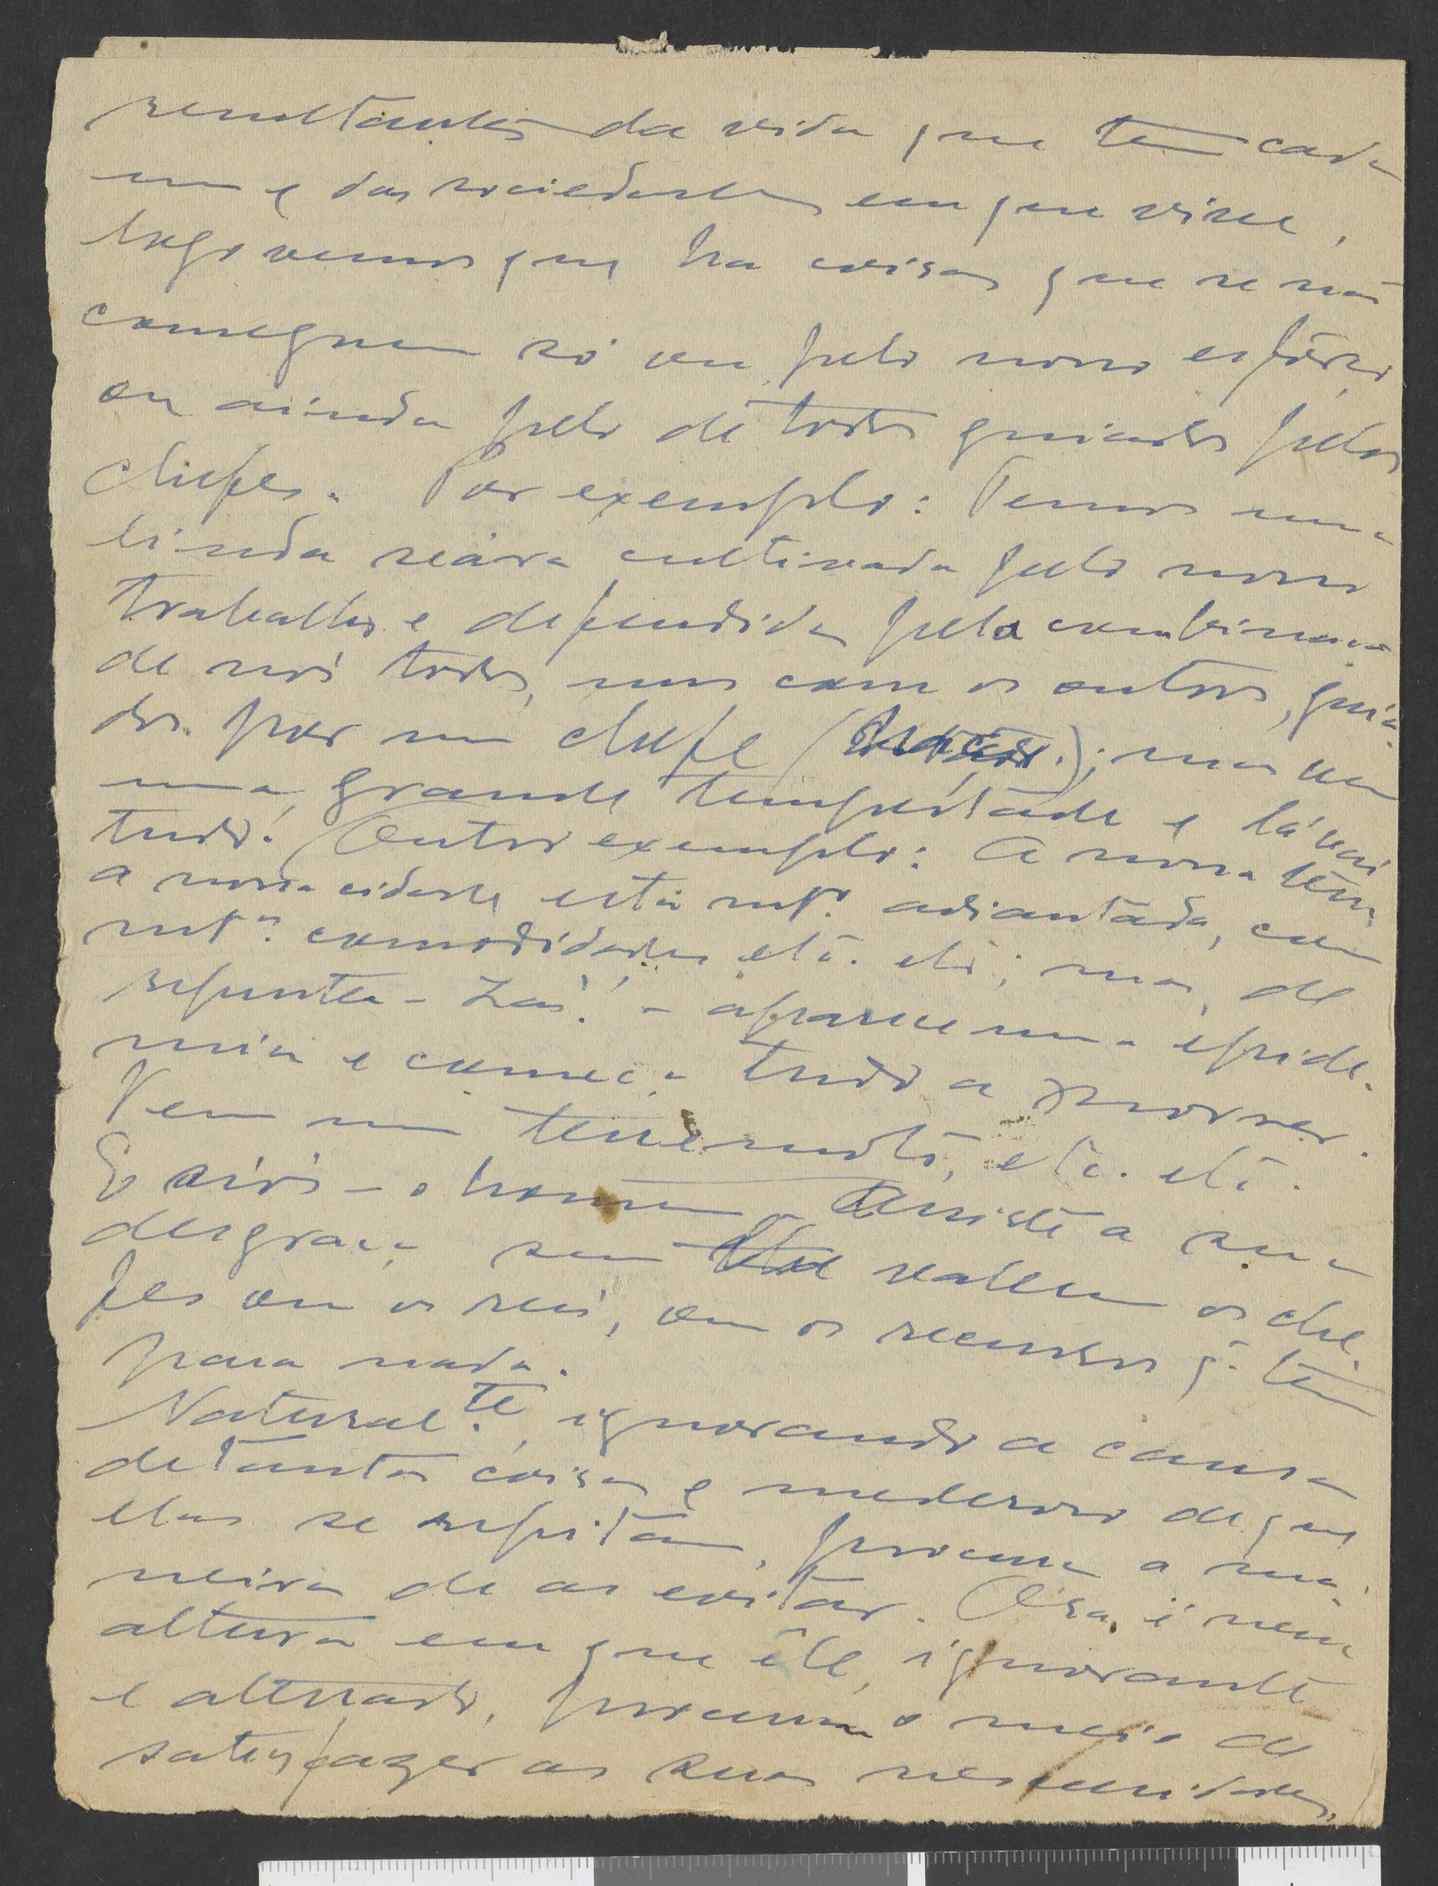 resultantes da vida que tem cada
um e das sociedades em que vive,
logo vemos que ha coisas que se não
conseguem só ou pelo nosso esfôrço,
ou ainda pelo de todos guiados pelos
chefes. Por exemplo: Temos uma
linda seára cultivada pelo nosso
trabalho e defendida pela combinação
de nós todos, uns com os outros, guia-
dos por um chefe; mas vem
uma grande tempestade e lá vai
tudo! Outro exemplo: A nossa terra,
a nossa cidade está mtº. adiantada, com
mtªs. comodidades etc. etc; mas, de
repente - zás! - aparece uma epide-
mia e começa tudo a morrer.
Vem um terremoto, etc. etc.
E aí vis - o homem - assiste á sua
desgraça sem valerem os che-
fes ou os reis, ou os recursos q. tem
para nada.
Natural.te ignorando a causa
de tantas coisas e mederoso de que
elas se repitam, procura a ma-
neira de as evitar. Ora, é nesta
altura em que êle, ignorante
e aterrado, procura o meio de
satisfazer as suas necessidades,